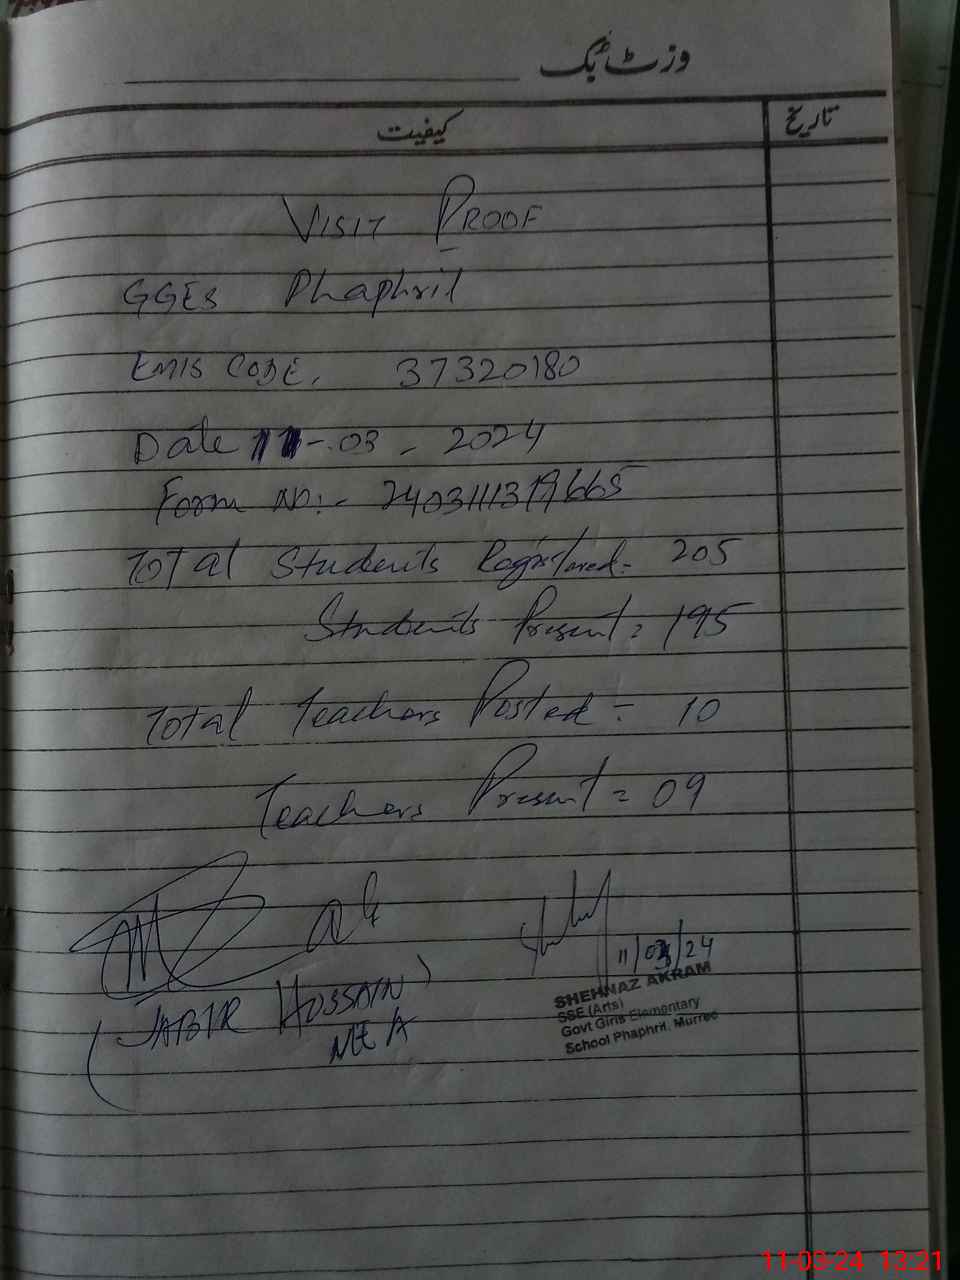 وزٹ بُک
کیفیت
تاریخ
VISIT PROOF
GGES Phaphril
EMIS CODE. 37320180
Date 11-03-2024
Form No:- 2403111319665
Total Students Registered- 205
Students Present = 195
Total Teachers Posted - 10
Teachers Present = 09
11/03/24
(JABIR HUSSAIN)
MEA
SHEHNAZ AKRAM
SSE (Arts)
Govt Girls Elementary
School Phaphril, Murree
11-03-24 13:21